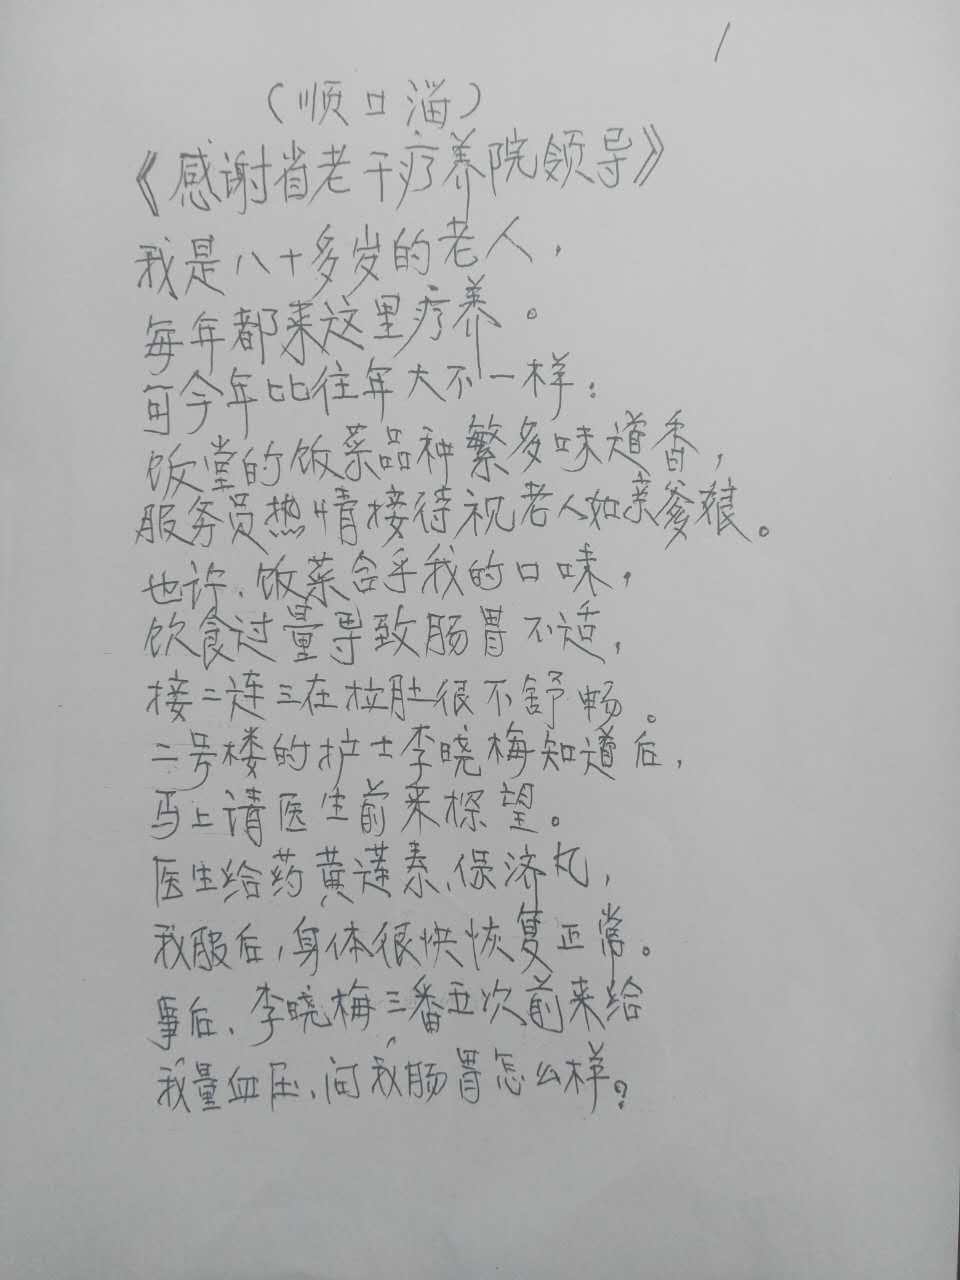 1
（顺口溜）
《感谢省老干疗养院领导》
我是八十多岁的老人，
每年都来这里疗养。
可今年比往年大不一样：
饭堂的饭菜品种繁多味道香，
服务员热情接待视老人如亲爹娘。
也许、饭菜合乎我的口味，
饮食过量导致肠胃不适，
接二连三在拉肚很不舒畅。
二号楼的护士李晓梅知道后，
马上请医生前来探望。
医生给药黄莲素、保济丸，
我服后，身体很快恢复正常。
事后、李晓梅三番五次前来给
我量血压、问我肠胃怎么样？